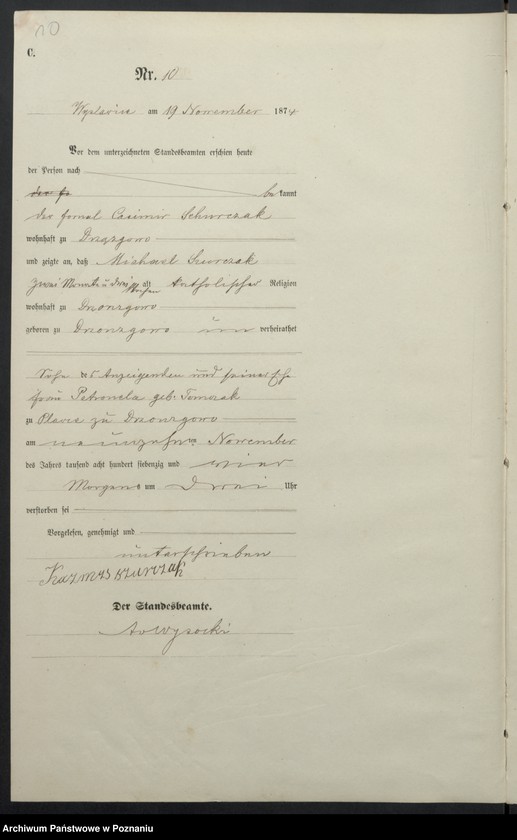 10
C.
Nr. 10
am 19 November 1874
Vor dem unterzeichneten Standesbeamten erschien heute
der Person nach
be kannt
der fornal Casimir Schurczak
wohnhaft zu
und zeigte an, daß Michael Szurczak
zwei Monate u drei Wochen alt katholischer Religion
wohnhaft zu
geboren zu un verheirathet
Sohn des Anzeigenden und seiner Ehe
frau Petronela geb. Tomczak
zu
am neunzehnten November
des Jahres tausend acht hundert siebenzig und vier
Morgens um Drei Uhr
verstorben sei
Vorgelesen, genehmigt und
unterschrieben
Der Standesbeamte.
Archiwum Państwowe w Poznaniu